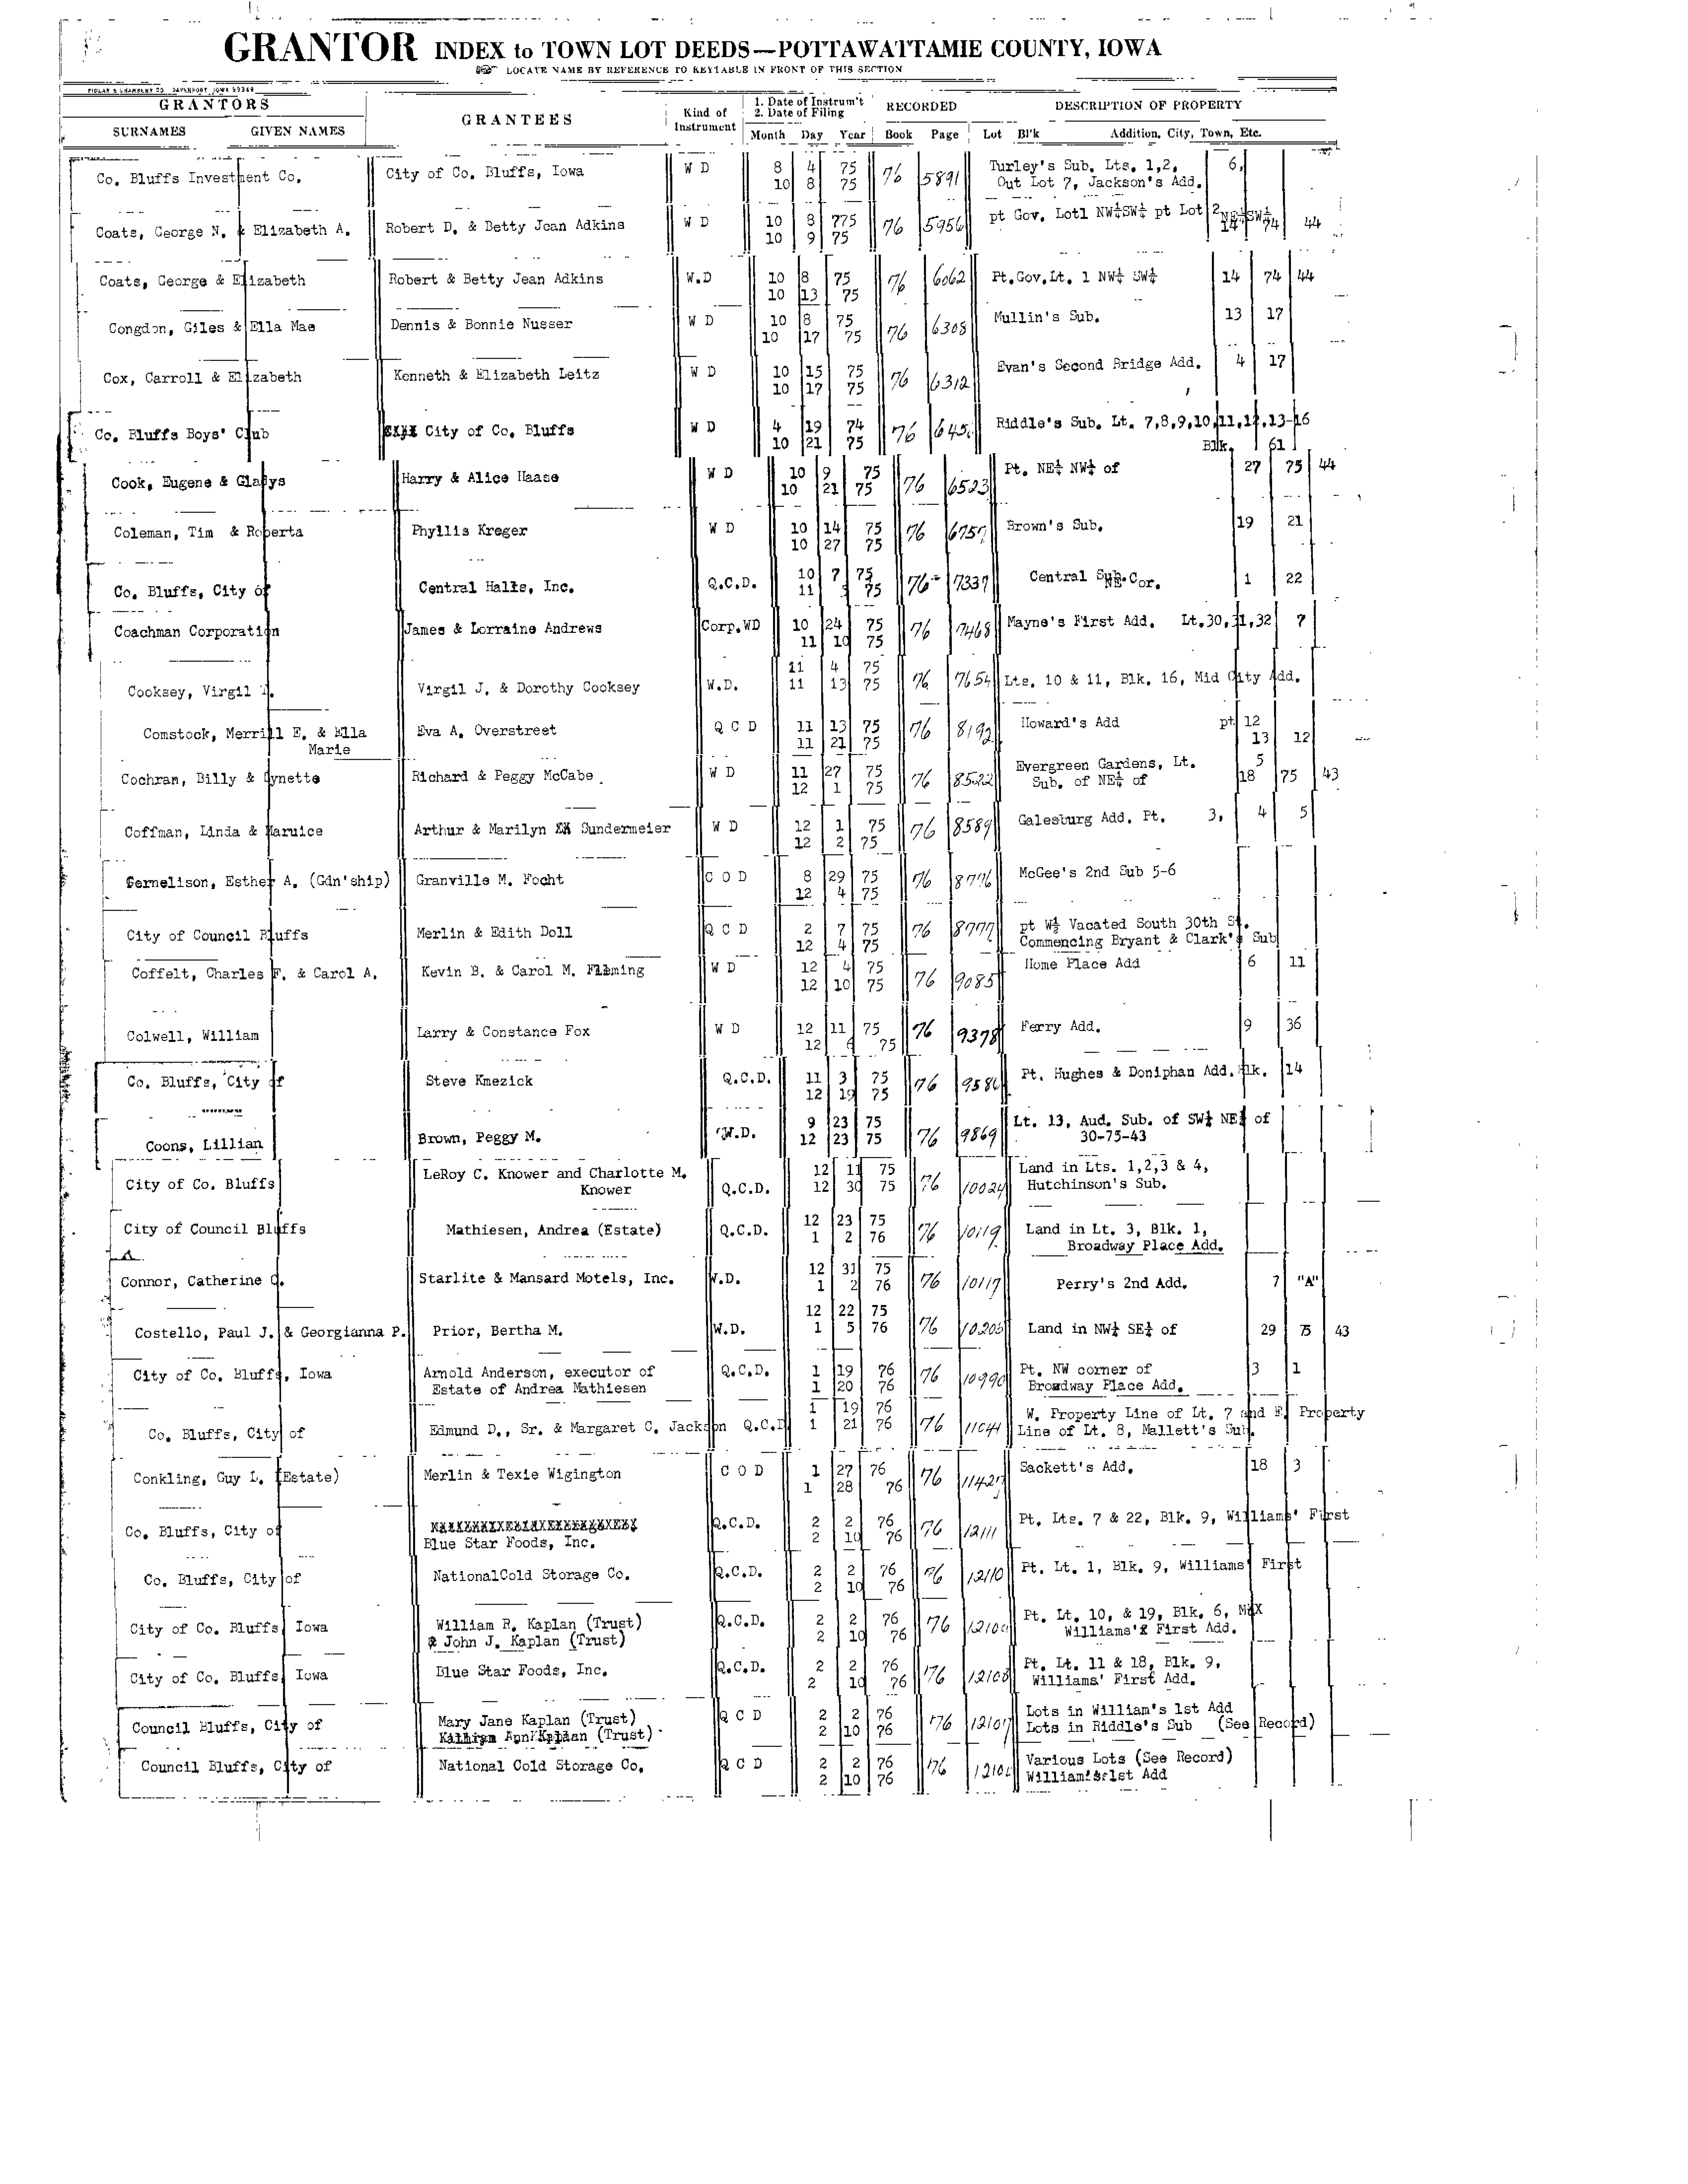 GRANTOR INDEX to TOWN LOT DEEDS—POTTAWATTAMIE COUNTY, IOWA
LOCATE NAME BY REFERENCE TO KEYTABLE IN FRONT OF THIS SECTION
GRANTORS GRANTEES Kind of Instrument 1. Date of Instrum't 2. Date of Filing RECORDED DESCRIPTION OF PROPERTY
SURNAMES GIVEN NAMES Month Day Year Book Page Lot Bl'k Addition, City, Town, Etc.
Co. Bluffs Investment Co. City of Co. Bluffs, Iowa W D 8 4 75 76 5891 Turley's Sub. Lts. 1,2, 6,
10 8 75 Out Lot 7, Jackson's Add.
Coats, George N. & Elizabeth A. Robert D. & Betty Jean Adkins W D 10 8 775 76 5956 pt Gov. Lot1 NW¼SW¼ pt Lot 2 44
10 9 75
Coats, George & Elizabeth Robert & Betty Jean Adkins W.D 10 8 75 76 6062 Pt.Gov.Lt. 1 NW¼ SW¼ 14 74 44
10 13 75
Congdon, Giles & Ella Mae Dennis & Bonnie Nusser W D 10 8 75 76 6308 Mullin's Sub. 13 17
10 17 75
Cox, Carroll & Elizabeth Kenneth & Elizabeth Leitz W D 10 15 75 76 6312 Evan's Second Bridge Add. 4 17
10 17 75
Co. Bluffs Boys' Club City of Co. Bluffs W D 4 19 74 76 Riddle's Sub. Lt. 7,8,9,10,11,12,13-16
10 21 75 Blk. 61
Cook, Eugene & Gladys Harry & Alice Haase W D 10 9 75 76 6523 Pt. NE¼ NW¼ of 27 75 44
10 21 75
Coleman, Tim & Roberta Phyllis Kreger W D 10 14 75 76 6757 Brown's Sub. 19 21
10 27 75
Co. Bluffs, City of Central Halls, Inc. Q.C.D. 10 7 75 76 7339 Central Sub. NE Cor. 1 22
11 75
Coachman Corporation James & Lorraine Andrews Corp.WD 10 24 75 76 7468 Mayne's First Add. Lt.30,31,32 7
11 10 75
Cooksey, Virgil Virgil J. & Dorothy Cooksey W.D. 11 4 75 76 7654 Lts. 10 & 11, Blk. 16, Mid City Add.
11 13 75
Comstock, Merrill E. & Ella Marie Eva A. Overstreet Q C D 11 13 75 76 8192 Howard's Add pt 12
11 21 75 13 12
Cochran, Billy & Cynette Richard & Peggy McCabe W D 11 27 75 76 8522 Evergreen Gardens, Lt. 5
12 1 75 Sub. of NE¼ of 18 75 43
Coffman, Linda & Maruice Arthur & Marilyn Sundermeier W D 12 1 75 76 8589 Galesburg Add. Pt. 3, 4 5
12 2 75
Cernelison, Esther A. (Gdn'ship) Granville M. Focht C O D 8 29 75 76 8776 McGee's 2nd Sub 5-6
12 4 75
City of Council Bluffs Merlin & Edith Doll Q C D 2 7 75 76 8777 pt W½ Vacated South 30th St.
12 4 75 Commencing Bryant & Clark's Sub
Coffelt, Charles F. & Carol A. Kevin B. & Carol M. Fleming W D 12 4 75 76 9085 Home Place Add 6 11
12 10 75
Colwell, William Larry & Constance Fox W D 12 11 75 76 9378 Ferry Add. 9 36
12 75
Co. Bluffs, City of Steve Kmezick Q.C.D. 11 3 75 76 Pt. Hughes & Doniphan Add. Blk. 14
12 19 75
Coons, Lillian Brown, Peggy M. W.D. 9 23 75 76 9869 Lt. 13, Aud. Sub. of SW¼ NE¼ of
12 23 75 30-75-43
City of Co. Bluffs LeRoy C. Knower and Charlotte M. Knower Q.C.D. 12 11 75 76 10024 Land in Lts. 1,2,3 & 4,
12 30 75 Hutchinson's Sub.
City of Council Bluffs Mathiesen, Andrea (Estate) Q.C.D. 12 23 75 76 10119 Land in Lt. 3, Blk. 1,
1 2 76 Broadway Place Add.
Connor, Catherine C. Starlite & Mansard Motels, Inc. W.D. 12 31 75 76 10117 Perry's 2nd Add. 7 "A"
1 2 76
Costello, Paul J. & Georgianna P. Prior, Bertha M. W.D. 12 22 75 76 10205 Land in NW¼ SE¼ of 29 75 43
1 5 76
City of Co. Bluffs, Iowa Arnold Anderson, executor of Q.C.D. 1 19 76 76 10990 Pt. NW corner of 3 1
Estate of Andrea Mathiesen 1 20 76 Broadway Place Add.
Co. Bluffs, City of Edmund D., Sr. & Margaret C. Jackson Q.C.D 1 19 76 76 11041 W. Property Line of Lt. 7 and E. Property
1 21 76 Line of Lt. 8, Mallett's Sub.
Conkling, Guy L. (Estate) Merlin & Texie Wigington C O D 1 27 76 76 11427 Sackett's Add. 18 3
1 28 76
Co. Bluffs, City of Blue Star Foods, Inc. Q.C.D. 2 2 76 76 12111 Pt. Lts. 7 & 22, Blk. 9, Williams' First
2 10 76
Co. Bluffs, City of NationalCold Storage Co. Q.C.D. 2 2 76 76 12110 Pt. Lt. 1, Blk. 9, Williams' First
2 10 76
City of Co. Bluffs, Iowa William R. Kaplan (Trust) Q.C.D. 2 2 76 76 Pt. Lt. 10, & 19, Blk. 6,
& John J. Kaplan (Trust) 2 10 76 Williams' First Add.
City of Co. Bluffs, Iowa Blue Star Foods, Inc. Q.C.D. 2 2 76 76 12108 Pt. Lt. 11 & 18, Blk. 9,
2 10 76 Williams' First Add.
Council Bluffs, City of Mary Jane Kaplan (Trust) Q C D 2 2 76 76 12107 Lots in William's 1st Add
Kathryn Ann Kaplan (Trust) 2 10 76 Lots in Riddle's Sub (See Record)
Council Bluffs, City of National Cold Storage Co. Q C D 2 2 76 76 Various Lots (See Record)
2 10 76 William's 1st Add